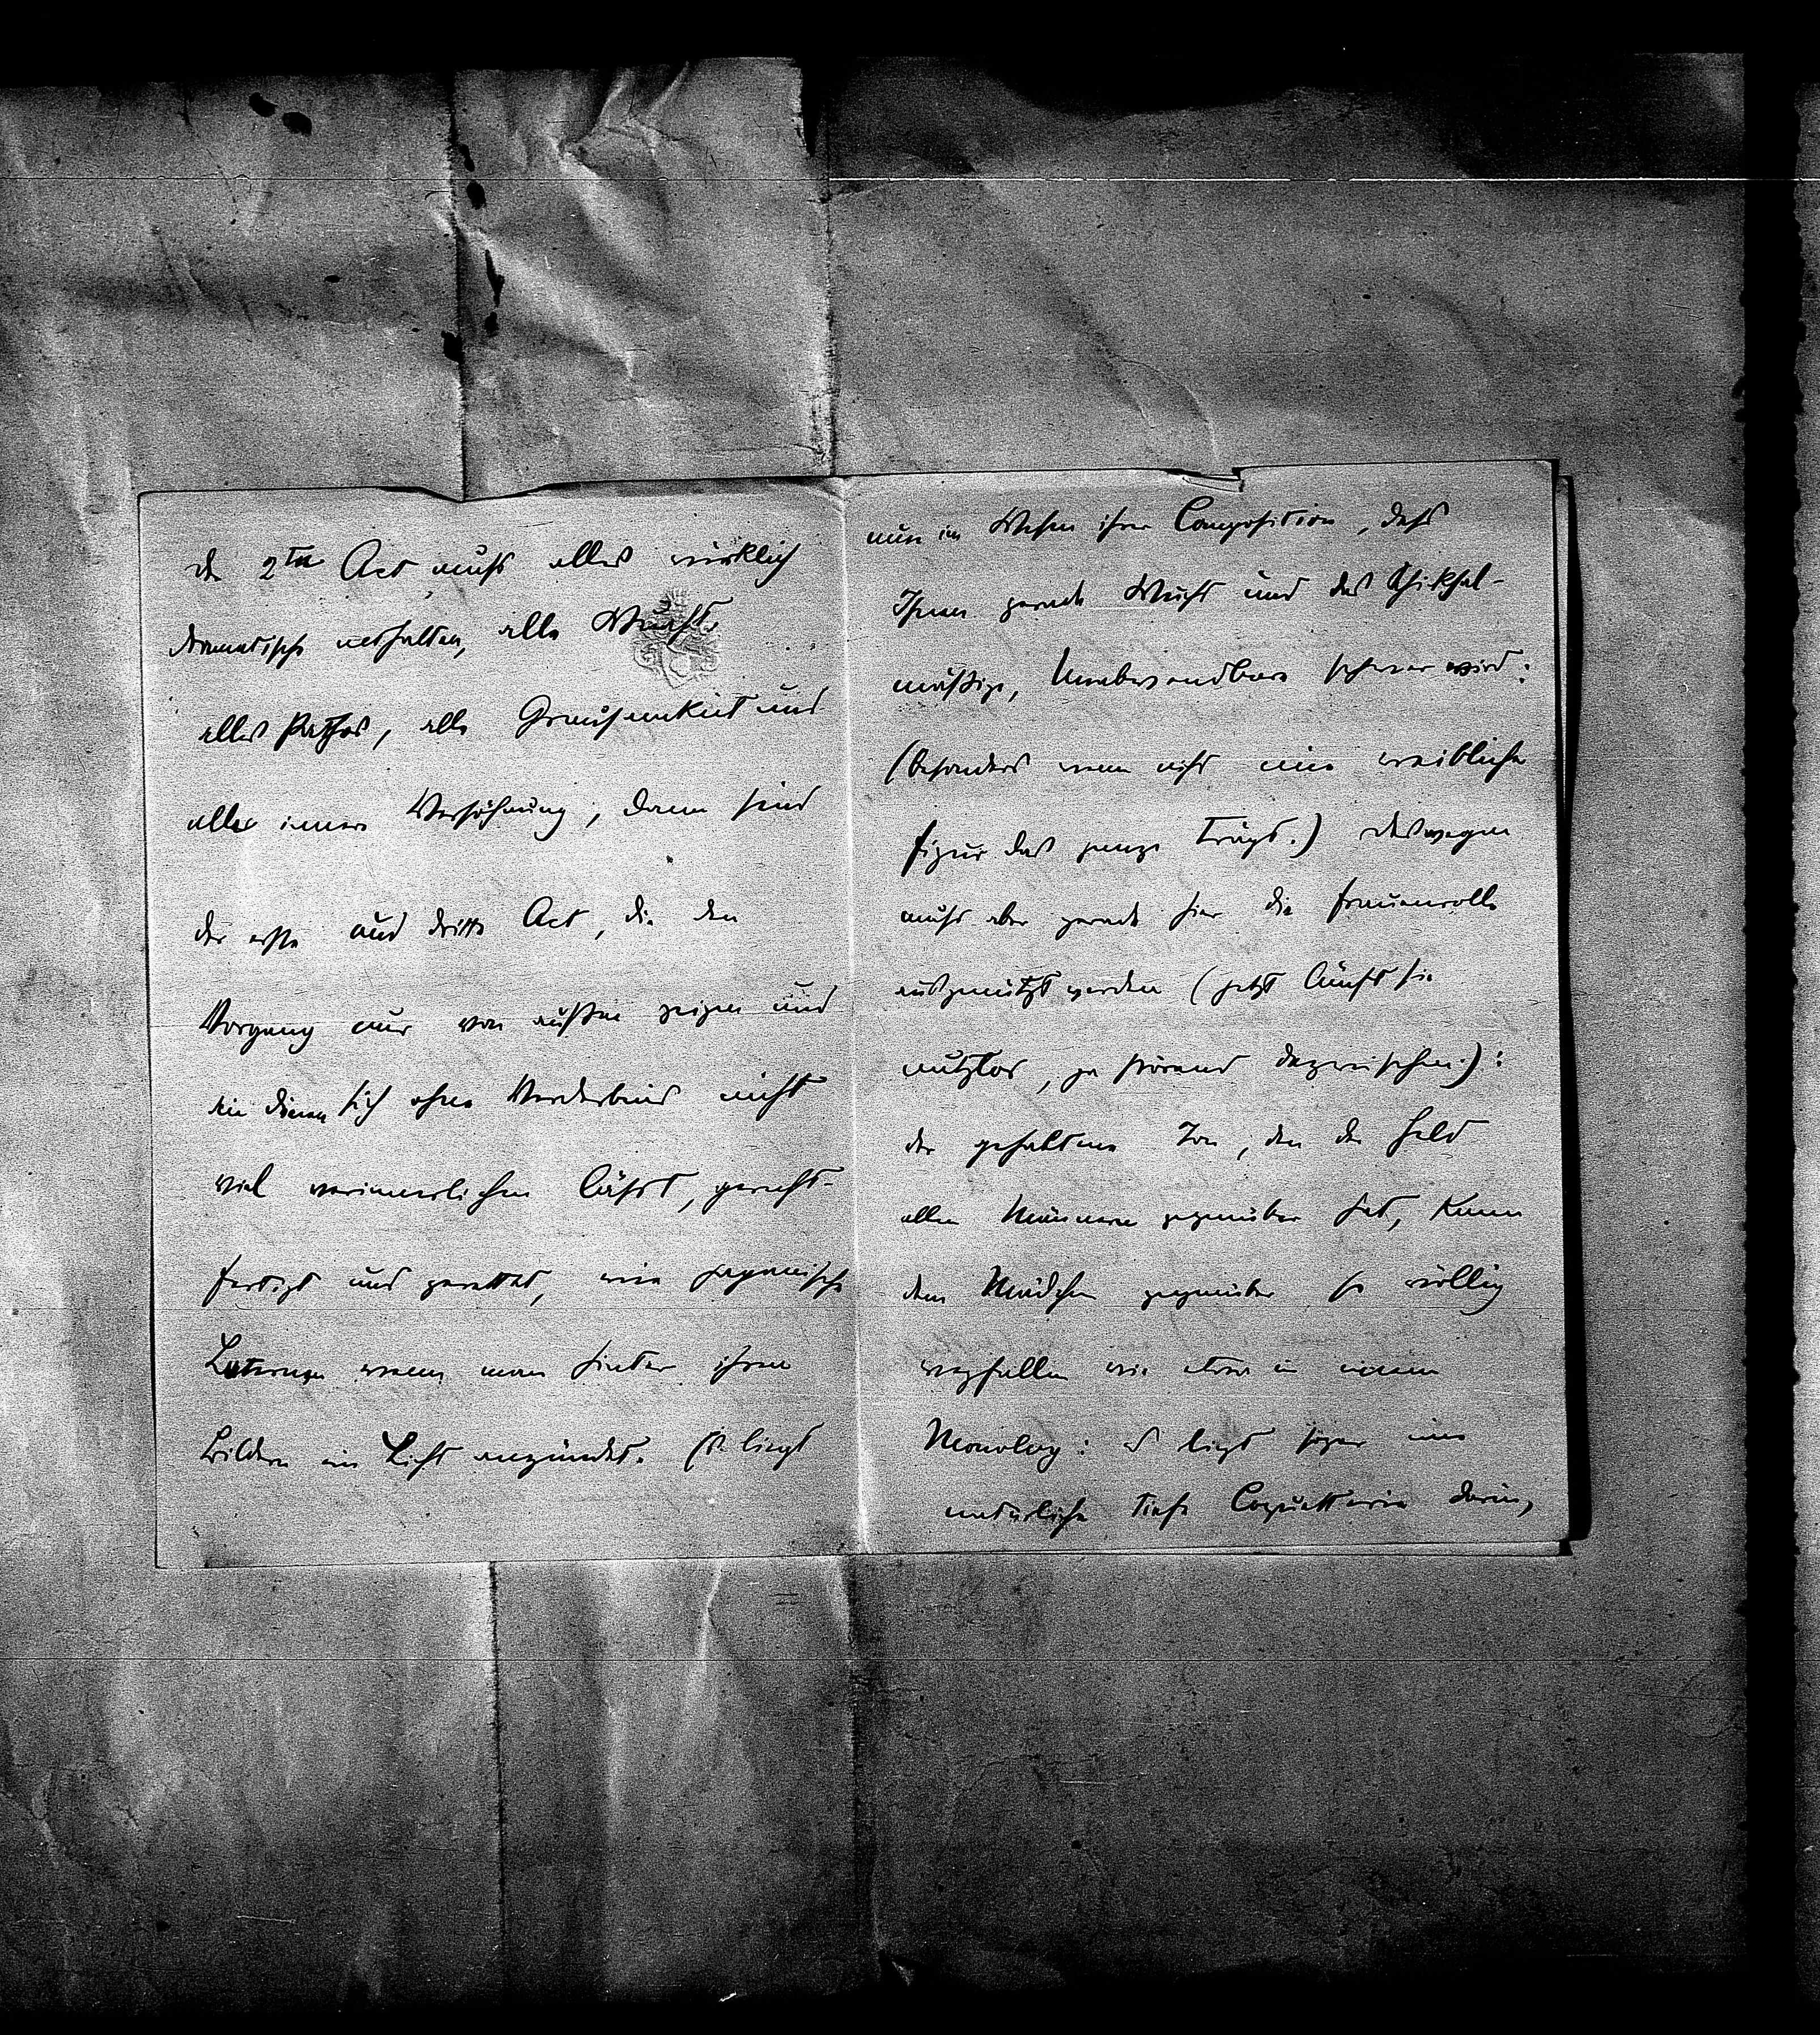 der 2te Act muss alles wirklich
dramatische enthalten, alle Wucht,
alles Pathos, alle Grausamkeit und
alle innere Versöhnung, dann sind
der erste und dritte Act, die den
Vorgang nur von außen zeigen und
die sich ohne Verderbnis nicht
viel verinnerlichen lässt, gerecht-
fertigt und gerettet, wie japanische
Laternen wenn man hinter ihren
Bildern ein Licht anzündet. Es liegt
nun im Wesen ihrer Composition, dass
Ihnen gerade Wucht und das Schiksal-
mäßige, Unabwendbare schwer wird:
(besonders wenn nicht eine weibliche
figur das ganze trägt.) deswegen
muss aber gerade hier die frauenrolle
ausgenützt werden (jetzt läuft sie
nutzlos, ja störend dazwischen):
der gehaltene Ton, den der Held
allen Männern gegenüber hat, kann
dem Mädchen gegenüber so völlig
wegfallen wie etwa in einem
Monolog: es liegt sogar eine
natürliche tiefe Coquetterie darin,